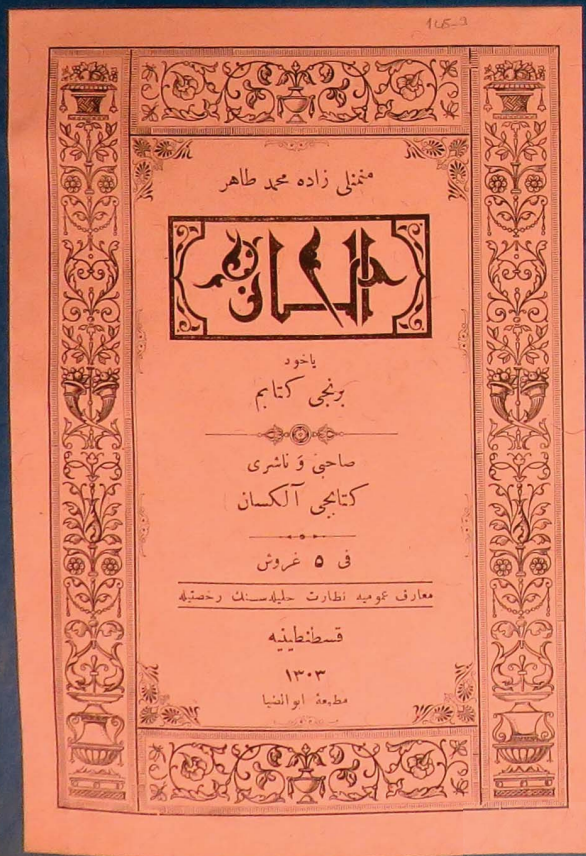 145-9
منمنلی زاده محمد طاهر
یاخود
برنجی کتابم
صاحبی و ناشری
کتابجی آلکسان
فی ۵ غروش
معارف عمومیه نظارت جلیله‌سنك رخصتیله
قسطنطینیه
۱۳۰۳
مطبعهٔ ابوالضیا